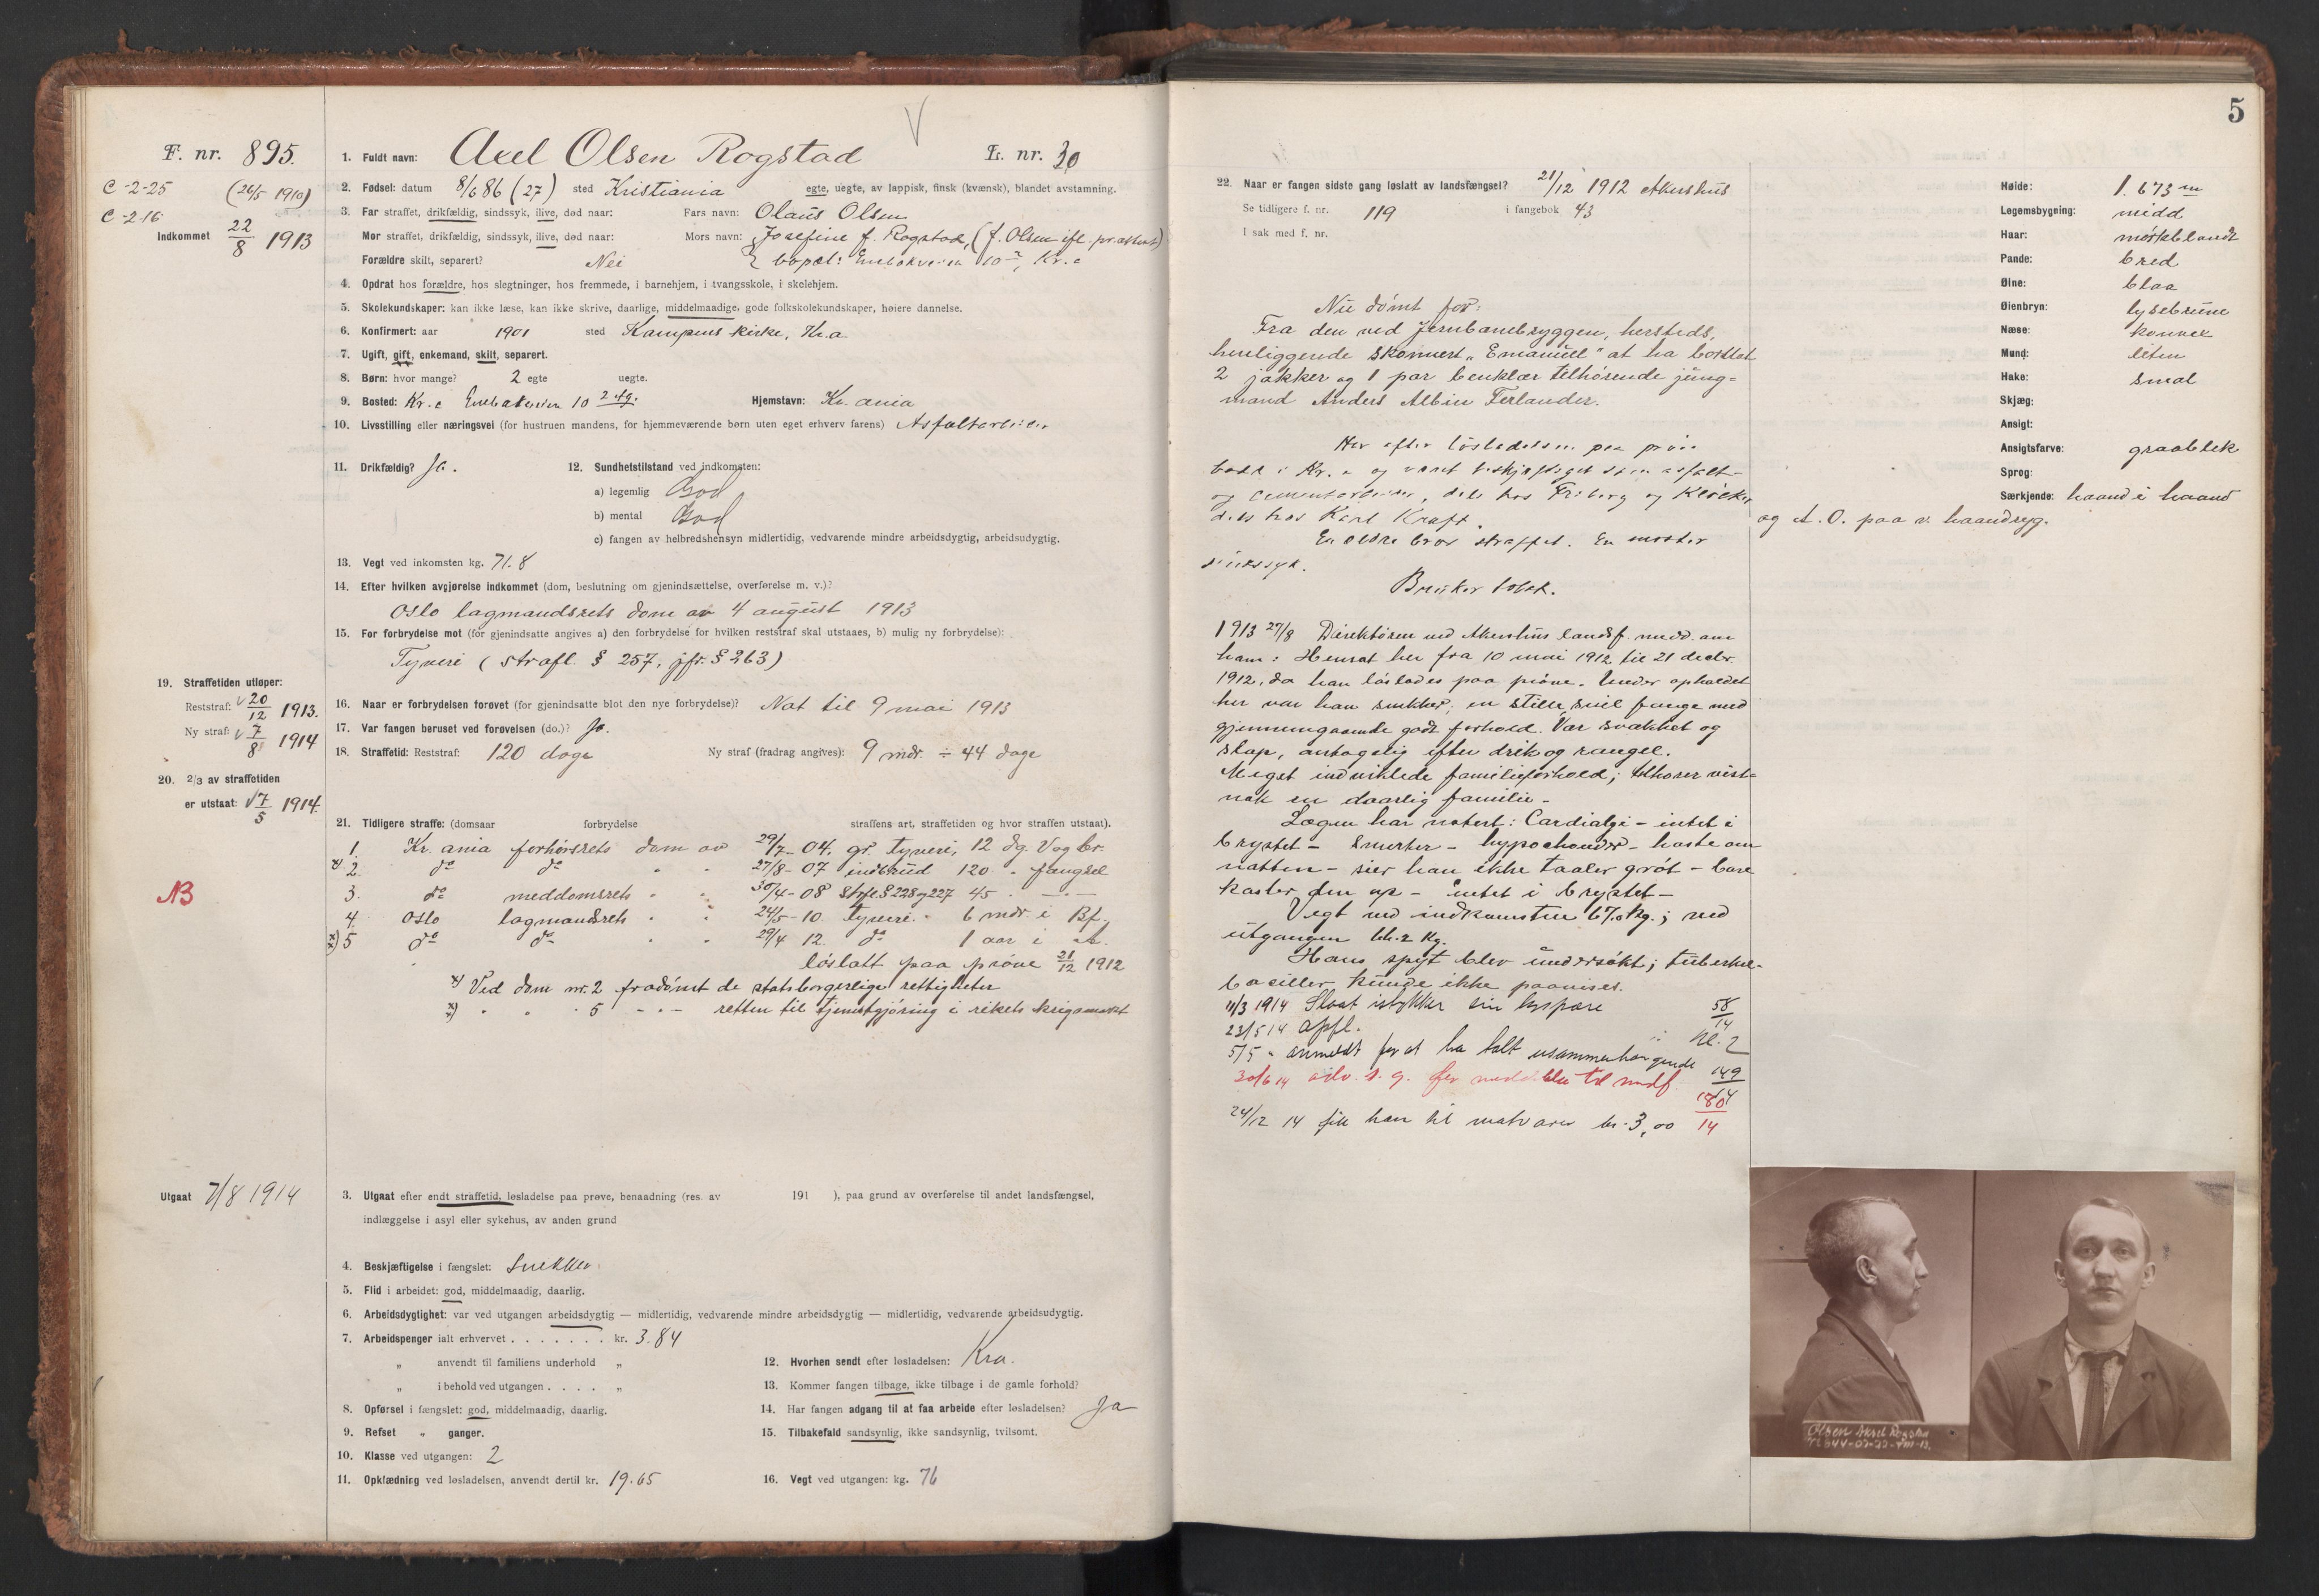 F. nr. 895.
C-2-25 (26/5 1910)
C-2-16
Indkommet 22/8 1913
1. Fuldt navn: Axel Olsen Rogstad L. nr. 30
2. Fødsel: datum 8/6 86 (27) sted Kristiania egte, uegte, av lappisk, finsk (kvænsk), blandet avstamning.
3. Far straffet, drikfældig, sindssyk, ilive, død naar: Fars navn: Olaus Olsen
Mor straffet, drikfældig, sindssyk, ilive, død naar: Mors navn: Josefine f. Rogstad, (f. Olsen ifl. pr.attest)
Forældre skilt, separert? Nei bopæl: Enebakveien 10 Kr.a
4. Opdrat hos forældre, hos slegtninger, hos fremmede, i barnehjem, i tvangsskole, i skolehjem.
5. Skolekundskaper: kan ikke læse, kan ikke skrive, daarlige, middelmaadige, gode folkskolekundskaper, høiere dannelse.
6. Konfirmert: aar 1901 sted Kampens kirke, Kr.a
7. Ugift, gift, enkemand, skilt, separert.
8. Børn: hvor mange? 2 egte uegte.
9. Bosted: Kr.a Enebakveien 10 2 etg. Hjemstavn: Kr.ania
10. Livsstilling eller næringsvei (for hustruen mandens, for hjemmeværende børn uten eget erhverv farens) Asfaltarbeider
11. Drikfældig? Ja. 12. Sundhetstilstand ved indkomsten:
a) legemlig God
b) mental God
c) fangen av helbredshensyn midlertidig, vedvarende mindre arbeidsdygtig, arbeidsudygtig.
13. Vegt ved inkomsten kg. 71.8
14. Efter hvilken avgjørelse indkommet (dom, beslutning om gjenindsættelse, overførelse m. v.)?
Oslo lagmandsrets dom av 4 august 1913
15. For forbrydelse mot (for gjenindsatte angives a) den forbrydelse for hvilken reststraf skal utstaaes, b) mulig ny forbrydelse):
Tyveri (strafl. § 257, jfr. § 263)
19. Straffetiden utløper:
Reststraf: 20/12 1913.
Ny straf: 7/8 1914
16. Naar er forbrydelsen forøvet (for gjenindsatte blot den nye forbrydelse)? Nat til 9 mai 1913
17. Var fangen beruset ved forøvelsen (do.)? Ja.
18. Straffetid: Reststraf: 120 dage Ny straf (fradrag angives): 9 mdr. ÷ 44 dage
20. 2/3 av straffetiden
er utstaat: 7/5 1914.
21. Tidligere straffe: (domsaar forbrydelse straffens art, straffetiden og hvor straffen utstaat).
1. Kr.ania forhørsrets dom av 29/7-04, gr. tyveri, 12 dg. V og br.
x) 2. do do " " 27/8-07 indbrud 120 " fængsel
NB
3. do meddomsrets " " 30/4-08 Strfl. § 228 og 227 45 " — —
4. Oslo lagmandsrets " " 24/5-10. Tyveri. " 6 mdr. i Bf.
xx) 5 do do " " 29/4 12. do 1 aar i A.
løslatt paa prøve 21/12 1912
x) Ved dom nr. 2 fradømt de statsborgerlige rettigheter
xx) " " " 5 - " - retten til tjenestgjøring i rikets krigsmakt
Utgaat 7/8 1914
3. Utgaat efter endt straffetid, løsladelse paa prøve, benaadning (res. av 191 ), paa grund av overførelse til andet landsfængsel,
indlæggelse i asyl eller sykehus, av anden grund
4. Beskjæftigelse i fængslet: Snekker
5. Flid i arbeidet: god, middelmaadig, daarlig.
6. Arbeidsdygtighet: var ved utgangen arbeidsdygtig — midlertidig, vedvarende mindre arbeidsdygtig — midlertidig, vedvarende arbeidsudygtig.
7. Arbeidspenger ialt erhvervet . . . . . . . kr. 3.84
„ anvendt til familiens underhold „
„ i behold ved utgangen . . . . „
8. Opførsel i fængslet: god, middelmaadig, daarlig.
9. Refset „ ganger.
10. Klasse ved utgangen: 2
11. Opklædning ved løsladelsen, anvendt dertil kr. 19.65
12. Hvorhen sendt efter løsladelsen: Kra.
13. Kommer fangen tilbage, ikke tilbage i de gamle forhold?
14. Har fangen adgang til at faa arbeide efter løsladelsen? Ja
15. Tilbakefald sandsynlig, ikke sandsynlig, tvilsomt.
16. Vegt ved utgangen: kg. 76
5
22. Naar er fangen sidste gang løslatt av landsfængsel? 21/12 1912 Akershus
Se tidligere f. nr. 119 i fangebok 43
I sak med f. nr.
Nu dømt for:
Fra den ved Jernbanebryggen, hersteds,
henliggende skonnert „Emanuel" at ha borttat
2 jakker og 1 par benklær tilhørende jung=
mand Anders Albin Ferlander.
Har efter løsladelsen paa prøve
bodd i Kr.a og været beskjæftiget som asfalt-
og cementarbeider, dels hos Friberg og Klöcker
dels hos Karl Kraft.
En ældre bror straffet. En moster
sindssyk.
Bruker tobak.
1913 27/8 Direktøren ved Akershus landsf. medd. om
ham: Hensat her fra 10 mai 1912 til 21 decbr.
1912, da han løslodes paa prøve. Under opholdet
her var han snekker; en stille, snil fange med
gjennemgaaende godt forhold. Var svakket og
slap, antagelig efter drik og rangel.
Meget indviklede familieforhold; tilhører vist=
nok en daarlig familie.
Lægen har notert: Cardialgi - intet i
brystet - smerter - hypochonder - hoste om
natten - sier han ikke taaler grøt - bare
kaster den op - intet i brystet -
Vegt ved indkomsten 67.0 kg.; ved
utgangen 66.2 kg.
Hans spyt blev undersøkt; tuberkel-
baciller kunde ikke paavises.
11/3 1914 Slaat istykker sin lyspære 58/14
23/5 14 opfl. Kl. 2
5/5 " anmeldt for at ha talt usammenhængende 149/14
30/6 14 adv. s. g. før meddelelse til medf. 180/14
24/12 14 fik han til matvarer kr. 3,00
Høide: 1.673 m
Legemsbygning: midd.
Haar: mørkblondt
Pande: bred
Øine: blaa
Øienbryn: lysebrune
Næse: konvex
Mund: liten
Hake: smal
Skjæg:
Ansigt:
Ansigtsfarve: graablek
Sprog:
Særkjende: haand i haand
og A. O. paa v. haandryg.
Olsen Aksel Rogstad